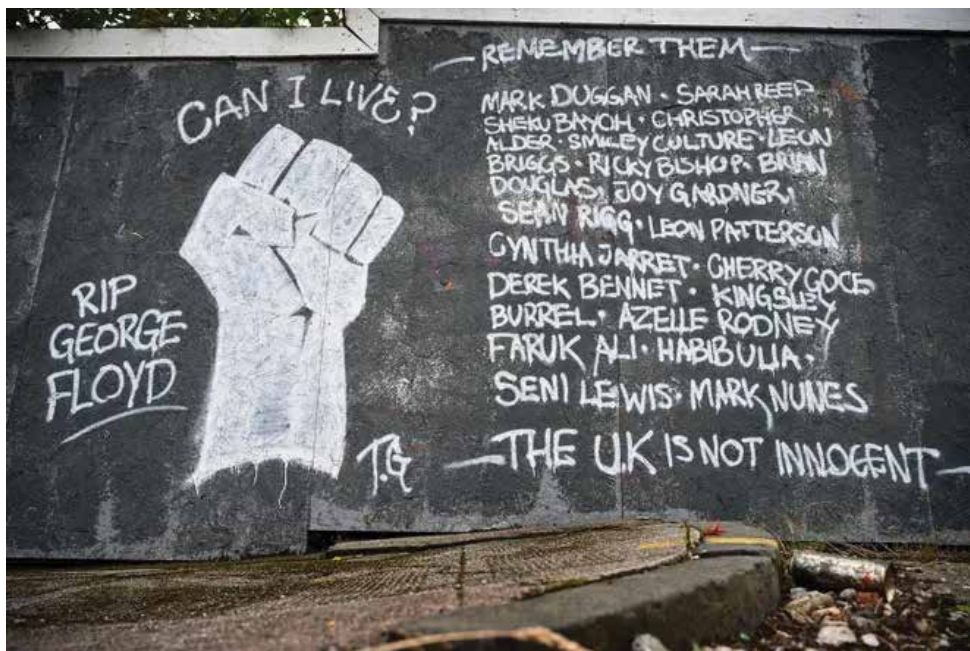 CAN I LIVE?
RIP
GEORGE
FLOYD
T.G
—REMEMBER THEM—
MARK DUGGAN · SARAH REED
SHEKU BAYOH · CHRISTOPHER
ALDER · SMILEY CULTURE · LEON
BRIGGS · RICKY BISHOP · BRIAN
DOUGLAS, JOY GARDNER,
SEAN RIGG · LEON PATTERSON
CYNTHIA JARRET · CHERRY GOCE
DEREK BENNET · KINGSLEY
BURREL · AZELLE RODNEY
FARUK ALI · HABIBULLA ·
SENI LEWIS · MARK NUNES
—THE U.K IS NOT INNOCENT—